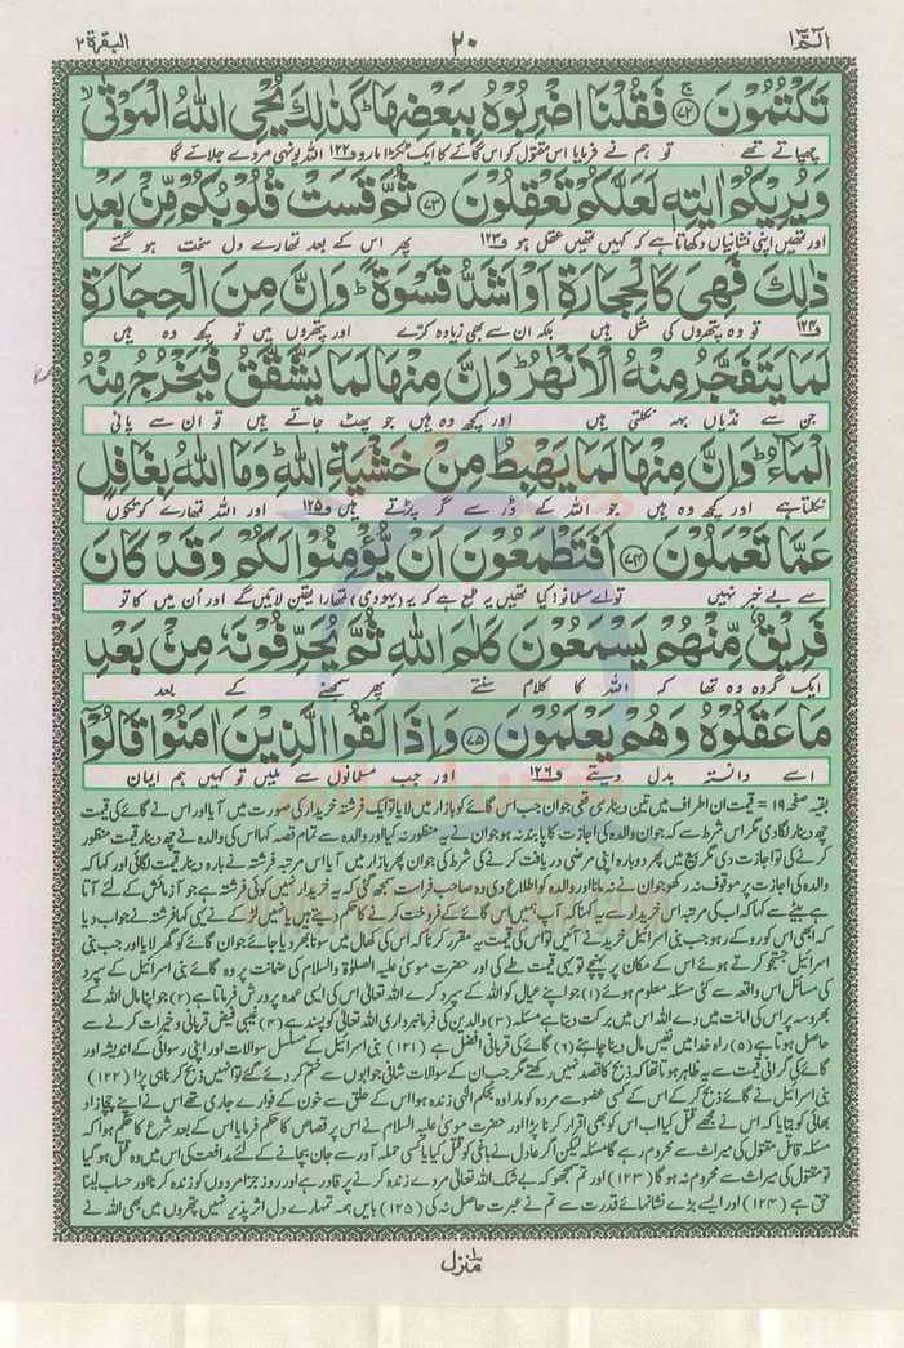 الٓمّٓ ١
٢٠
البقرة ٢
تَكْتُمُوْنَ ﴿۷۲﴾ فَقُلْنَا اضْرِبُوْهُ بِبَعْضِهَا ؕ كَذٰلِكَ یُحْیِ اللّٰهُ الْمَوْتٰى ۙ
چھپاتے تھے تو ہم نے فرمایا اس مقتول کو اس گائے کا ایک ٹکڑا مارو ف١٢٢ اللہ یونہی مردے جلائے گا
وَ یُرِیْكُمْ اٰیٰتِهٖ لَعَلَّكُمْ تَعْقِلُوْنَ ﴿۷۳﴾ ثُمَّ قَسَتْ قُلُوْبُكُمْ مِّنْۢ بَعْدِ
اور تمھیں اپنی نشانیاں دکھاتا ہے کہ کہیں تمھیں عقل ہو ف١٢٣ پھر اس کے بعد تمھارے دل سخت ہو گئے
ذٰلِكَ فَهِیَ كَالْحِجَارَةِ اَوْ اَشَدُّ قَسْوَةً ؕ وَ اِنَّ مِنَ الْحِجَارَةِ
ف١٢٤ تو وہ پتھروں کی مثل ہیں بلکہ ان سے بھی زیادہ کرّے اور پتھروں میں تو کچھ وہ ہیں
لَمَا یَتَفَجَّرُ مِنْهُ الْاَنْهٰرُ ؕ وَ اِنَّ مِنْهَا لَمَا یَشَّقَّقُ فَیَخْرُجُ مِنْهُ
جن سے ندیاں بہہ نکلتی ہیں اور کچھ وہ ہیں جو پھٹ جاتے ہیں تو ان سے پانی
الْمَآءُ ؕ وَ اِنَّ مِنْهَا لَمَا یَهْبِطُ مِنْ خَشْیَةِ اللّٰهِ ؕ وَ مَا اللّٰهُ بِغَافِلٍ
نکلتا ہے اور کچھ وہ ہیں جو اللہ کے ڈر سے گر پڑتے ہیں ف١٢٥ اور اللہ تمھارے کوتکوں
عَمَّا تَعْمَلُوْنَ ﴿۷۴﴾ اَفَتَطْمَعُوْنَ اَنْ یُّؤْمِنُوْا لَكُمْ وَ قَدْ كَانَ
سے بے خبر نہیں تو اے مسلمانو! کیا تمھیں یہ طمع ہے کہ یہ (یہودی) تمھارا یقین لائیں گے اور اُن میں کا تو
فَرِیْقٌ مِّنْهُمْ یَسْمَعُوْنَ كَلٰمَ اللّٰهِ ثُمَّ یُحَرِّفُوْنَهٗ مِنْۢ بَعْدِ
ایک گروہ وہ تھا کہ اللہ کا کلام سنتے پھر سمجھنے کے بعد
مَا عَقَلُوْهُ وَ هُمْ یَعْلَمُوْنَ ﴿۷۵﴾ وَ اِذَا لَقُوا الَّذِیْنَ اٰمَنُوْا قَالُوْۤا
اسے دانستہ بدل دیتے ف١٢٦ اور جب مسلمانوں سے ملیں تو کہیں ہم ایمان
بقیہ صفحہ ١٩ = قیمت ان اطراف میں تین دینار ی تھی جوان جب اس گائے کو بازار میں لایا تو ایک فرشتہ خریدار کی صورت میں آیا اور اس نے گائے کی قیمت
چھ دینار لگا دی مگر اس شرط سے کہ جوان والدہ کی اجازت کا پابند نہ ہو جوان نے یہ منظور نہ کیا اور والدہ سے تمام قصہ کہا اس کی والدہ نے چھ دینار قیمت منظور
کرنے کی تو اجازت دی مگر بیع میں پھر دوبارہ اپنی مرضی دریافت کرنے کی شرط کی جوان پھر بازار میں آیا اس مرتبہ فرشتہ نے بارہ دینار قیمت لگائی اور کہا کہ
والدہ کی اجازت پر موقوف نہ رکھو جوان نے نہ مانا اور والدہ کو اطلاع دی وہ صاحب فراست سمجھ گئی کہ یہ خریدار نہیں کوئی فرشتہ ہے جو آزمائش کے لئے آتا
ہے بیٹے سے کہا کہ اب کی مرتبہ اس خریدار سے یہ کہنا کہ آپ ہمیں اس گائے کے فروخت کرنے کا حکم دیتے ہیں یا نہیں لڑکے نے یہی کہا فرشتہ نے جواب دیا
کہ ابھی اس کو روکے رہو جب بنی اسرائیل خریدنے آئیں تو اس کی قیمت یہ مقرر کرنا کہ اس کی کھال میں سونا بھر دیا جائے جوان گائے کو گھر لایا اور جب بنی
اسرائیل جستجو کرتے ہوئے اس کے مکان پر پہنچے تو یہی قیمت طے کی اور حضرت موسیٰ علیہ الصلوٰۃ والسلام کی ضمانت پر وہ گائے بنی اسرائیل کے سپرد
کی مسائل اس واقعہ سے کئی مسئلہ معلوم ہوئے (١) جو اپنے عیال کو اللہ کے سپرد کرے اللہ تعالیٰ اس کی ایسی عمدہ پرورش فرماتا ہے (٢) جو اپنا مال اللہ کے
بھروسہ پر اس کی امانت میں دے اللہ اس میں برکت دیتا ہے مسئلہ (٣) والدین کی فرمانبرداری اللہ تعالیٰ کو پسند ہے (٤) غیبی فیض قربانی و خیرات کرنے سے
حاصل ہوتا ہے (٥) راہ خدا میں نفیس مال دینا چاہئے (٦) گائے کی قربانی افضل ہے (١٢١) بنی اسرائیل کے مسلسل سوالات اور اپنی رسوائی کے اندیشہ اور
گائے کی گرانی قیمت سے یہ ظاہر ہوتا تھا کہ ذبح کا قصد نہیں رکھتے مگر جب ان کے سوالات شافی جوابوں سے ختم کر دئے گئے تو انھیں ذبح کرنا ہی پڑا (١٢٢)
بنی اسرائیل نے گائے ذبح کر کے اس کے کسی عضو سے مردہ کو مارا وہ بحکم الٰہی زندہ ہوا اس کے حلق سے خون کے فوارے جاری تھے اس نے اپنے چچازاد
بھائی کو بتایا کہ اس نے مجھے قتل کیا اب اس کو بھی اقرار کرنا پڑا اور حضرت موسیٰ علیہ السلام نے اس پر قصاص کا حکم فرمایا اس کے بعد شرع کا حکم ہوا کہ
مسئلہ قاتل مقتول کی میراث سے محروم رہے گا مسئلہ لیکن اگر عادل نے باغی کو قتل کیا یا کسی حملہ آور سے جان بچانے کے لئے مدافعت کی اس میں وہ قتل ہو گیا
تو مقتول کی میراث سے محروم نہ ہو گا (١٢٣) اور تم سمجھو کہ بے شک اللہ تعالیٰ مردے زندہ کرنے پر قادر ہے اور روز جزا مردوں کو زندہ کرنا اور حساب لینا
حق ہے (١٢٤) اور ایسے بڑے نشانہائے قدرت سے تم نے عبرت حاصل نہ کی (١٢٥) بایں ہمہ تمہارے دل اثر پذیر نہیں پتھروں میں بھی اللہ نے
منزل ١